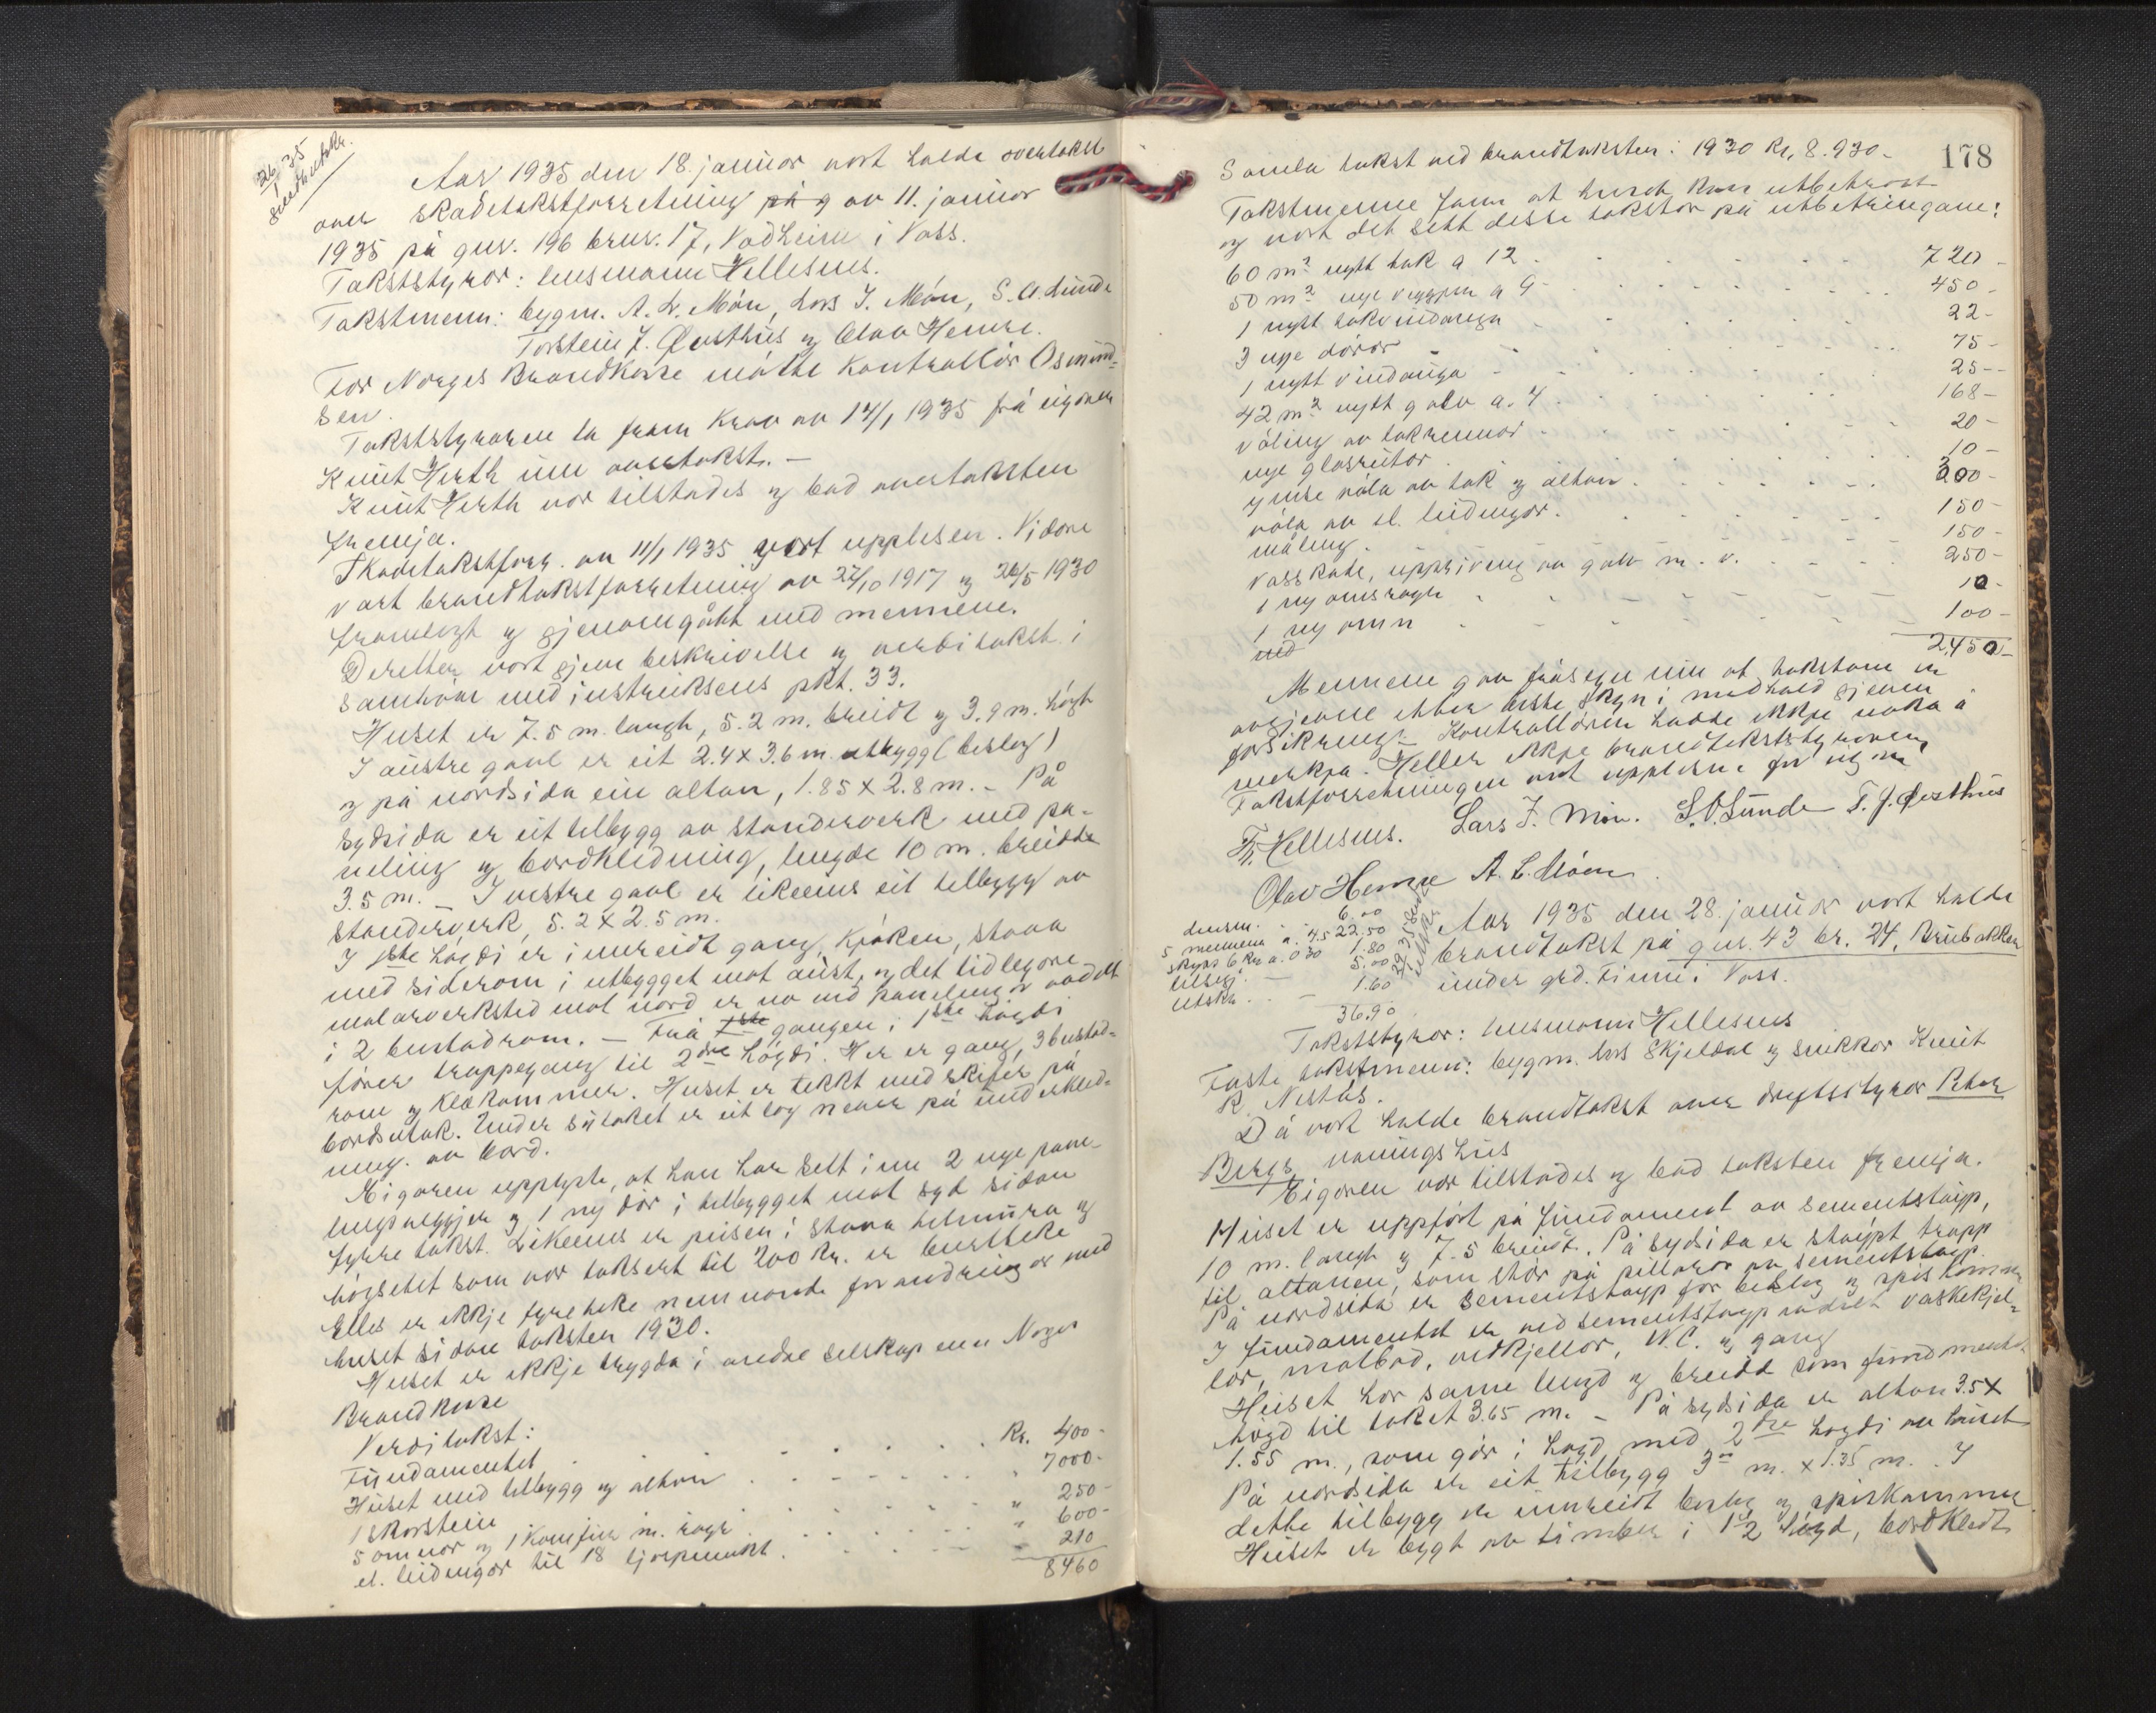 26/1 35
sendt utskr.
Aar 1935 den 18. januar vort halde overtakst
over skadetakstforretning på g av 11. januar
1935 på gnr. 196 brnr. 17, Vadheim i Voss.
Takststyrar: lensmann Hellesnes.
Takstmenn: bygm. A. L. Møn, Lars J. Møn, S. O. Lunde
Torstein J. Østhus og Olav Hemre.
For Norges Brandkasse møtte kontrollør Osmund-
sen.
Takststyraren la fram krav av 14/1 1935 frå eigaren
Knut Herth um overtakst. —
Knut Herth var tilstades og bad overtaksten
fremja.
Skadetakstforr. av 11/1 1935 vart upplesen. Vidare
vart brandtakstforretning av 27/10 1917 og 26/5 1930
framlegt og gjenomgått med mennene.
Deretter vort gjeve beskrivelse og verditakst i
samhøve med instruksens pkt. 33.
Huset er 7.5 m. langt, 5.2 m. breidt og 3.9 m. høgt
I austre gavl er eit 2.4 x 3.6 m. utbygg (beslag)
og på nordsida ein altan, 1.85 x 2.8 m. – På
sydsida er eit tilbygg av standerverk med pa-
neling og bordkledning, lengde 10 m. breidde
3.5 m. – I vestre gavl er likeeins eit tilbygg av
standerverk, 5.2 x 2.5 m.
I 1ste høgdi er inreidt gang, kjøken, stova
med siderom i utbygget mot aust, og det tidlegare
malarverksted mot nord er no ved paneling avdelt
i 2 bustadrom. – Frå 1ste gangen i 1ste høgdi
fører trappegang til 2dre høgdi. Her er gang, 3 bustad-
rom og klekammer. Huset er tekt med skifer på
bordsutak. Under sutaket er eit lag never på underkled-
ning. av bord.
Eigaren upplyste, at han har sett inn 2 nye pane-
lingsveggjer og 1 ny dør i tilbygget mot syd sidan
fyrre takst. Likeeins er peisen i stova tilmura og
høgsetet som var taksert til 200 kr. er burtteke
Elles er ikkje fyreteke nemnande forandringar med
huset sidan taksten 1930.
Huset er ikkje trygda i andre selskap enn Norges
Brandkasse
Verditakst:
Fundamentet Kr. 400-
Huset med tilbygg og altan " 7000-
1 skorstein " 250-
5 omnar og 1 komfur m. røyr " 600-
el. leidingar til 18 ljospunkt. " 210
8460
178
Samla takst ved brandtaksten: 1930 Kr. 8.930.-
Takstmennene fann at huset kan utbetrast
og vart det sett desse takstar på utbetringane:
60 m² nytt tak a 12 720-
50 m² nye veggjer a 9- 450-
1 nytt takvindauga 22-
3 nye dører 75-
1 nytt vindauga 25-
42 m² nytt golv a. 4 168-
vøling av takrennor 20-
nye glasrutor 10-
ymse vøla av tak og altan 300-
vøla av el. leidingar. 150-
måling. 150-
vasskade, uppriving av golv m. v. 250-
1 ny omsrøyr 10-
1 ny omn 100-
ved
2450-
Mennene gav fråsegn um at takstane er
avgjevne etter beste skyn i medhald gjeven
forsikring. – Kontrolløren hadde ikkje noko å
merkja. Heller ikkje brandtakststyraren
Takstforretningen vart upplesen for eigaren
Fr. Hellesnes. Lars J. Møn. S. O. Lunde T. J. Østhus
Olav Hemre A. L. Møen.
lensm. 6.00
5 mennene a. 4.5 22.50
skyss 6 km a. 0.30 1.80
tilseg. – 5.00
utskr. – 1.60
36.90
29/1 35 sendt utskr.
Aar 1935 den 28. januar vort halde
brandtakst på gnr. 43 br. 24, Brubakken
under grd. Finne i Voss.
Takststyrar: lensmann Hellesnes
Faste takstmenn: bygm. Lars Skjeldal og snikkar Knut
K. Nestås.
Då vort halde brandtakst over dryftsstyrar Petar
Bergs vaaningshus
Eigaren var tilstades og bad taksten fremja.
Huset er uppført på fundament av sementstøyp,
10 m. langt og 7.5 breidt. På sydsida er støypt trapp
til altanen, som står på pillarar av sementstøyp.
På nordsida er sementstøyp for beslag og spiskammer
I fundamentet er ved sementstøyp avdelt vaskekjel-
lar, matbod, vedkjellar, W.C. og gang
Huset har same lengd og breidd som fundamentet.
Høgd til taket 3.65 m. – På sydsida er altan 3.5 x
1.55 m., som går i høgd med 2dre høgdi av huset
På nordsida er eit tilbygg 3.00 m. x 1.35 m. I
dette tilbygg er innreidt beslag og spiskammer
Huset er bygt av timber i 1 1/2 høgd, bordkledt